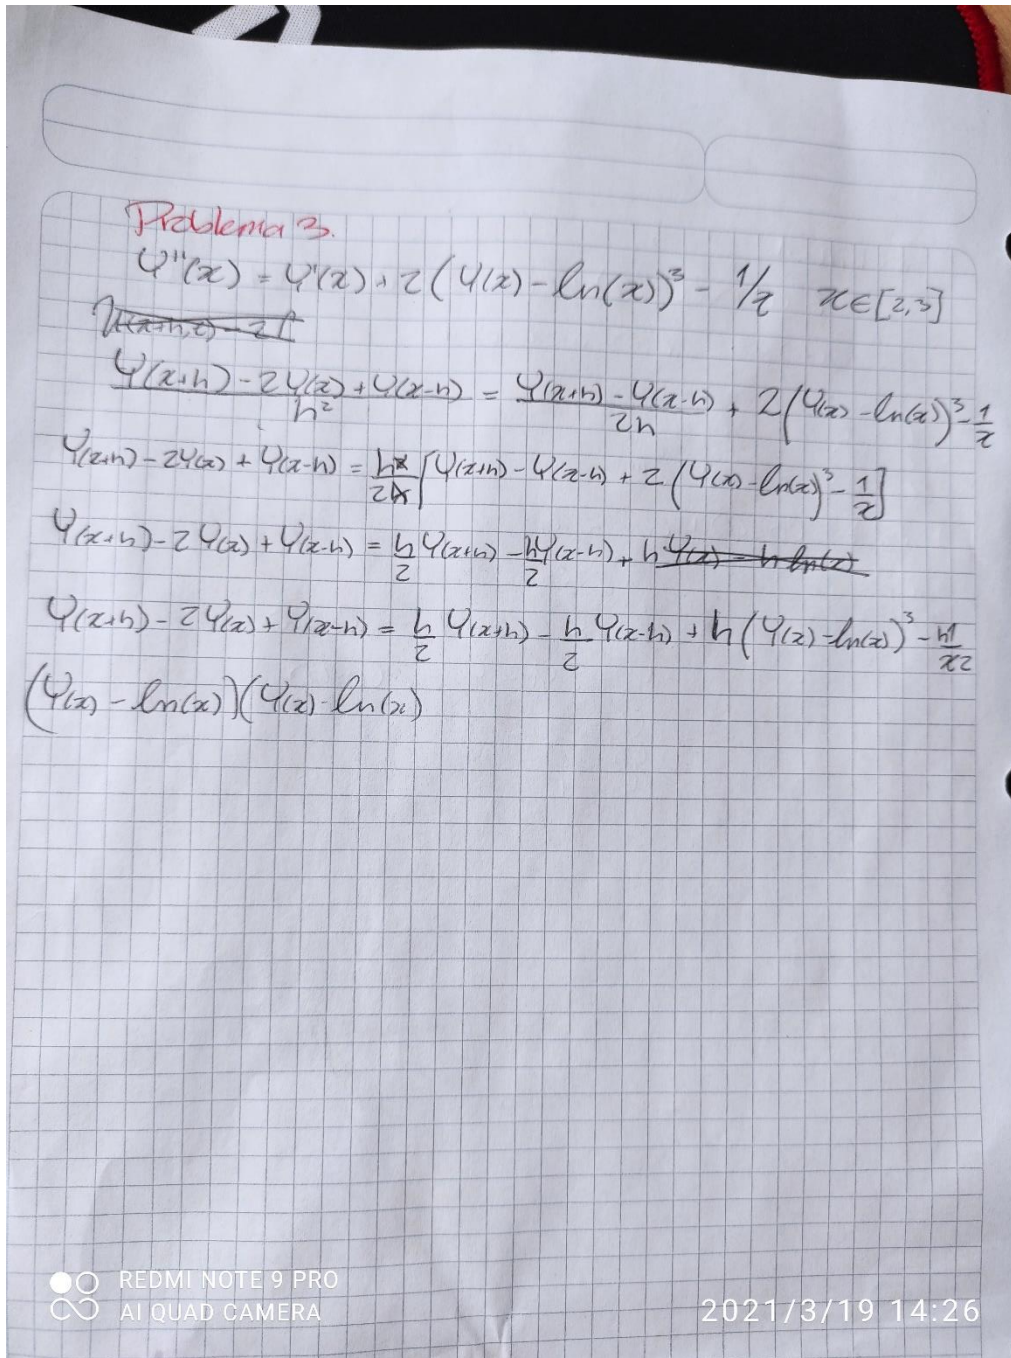 Problema 3.
Y''(x) = Y'(x) + 2(Y(x) - ln(x))³ - 1/x x∈[2,3]
Y(x+h) - 2Y(x) + Y(x-h) / h² = Y(x+h) - Y(x-h) / 2h + 2(Y(x) - ln(x))³ - 1/x
Y(x+h) - 2Y(x) + Y(x-h) = h²/2h [Y(x+h) - Y(x-h) + 2(Y(x) - ln(x))³ - 1/x]
Y(x+h) - 2Y(x) + Y(x-h) = h/2 Y(x+h) - h/2 Y(x-h) + h Y(x) - h ln(x)
Y(x+h) - 2Y(x) + Y(x-h) = h/2 Y(x+h) - h/2 Y(x-h) + h(Y(x) - ln(x))³ - h1/x2
(Y(x) - ln(x))(Y(x) - ln(x)
REDMI NOTE 9 PRO
AI QUAD CAMERA
2021/3/19 14:26